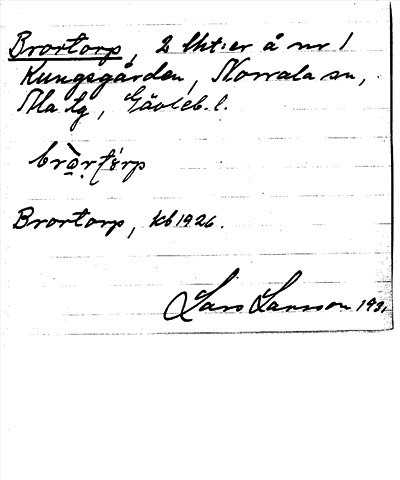 Brortorp, 2 lht:er å nr 1
Kungsgården, Norrala sn,
Ala tg, Gävleb. l.
Brortorp, kb 1926.
Lars Larsson 1931